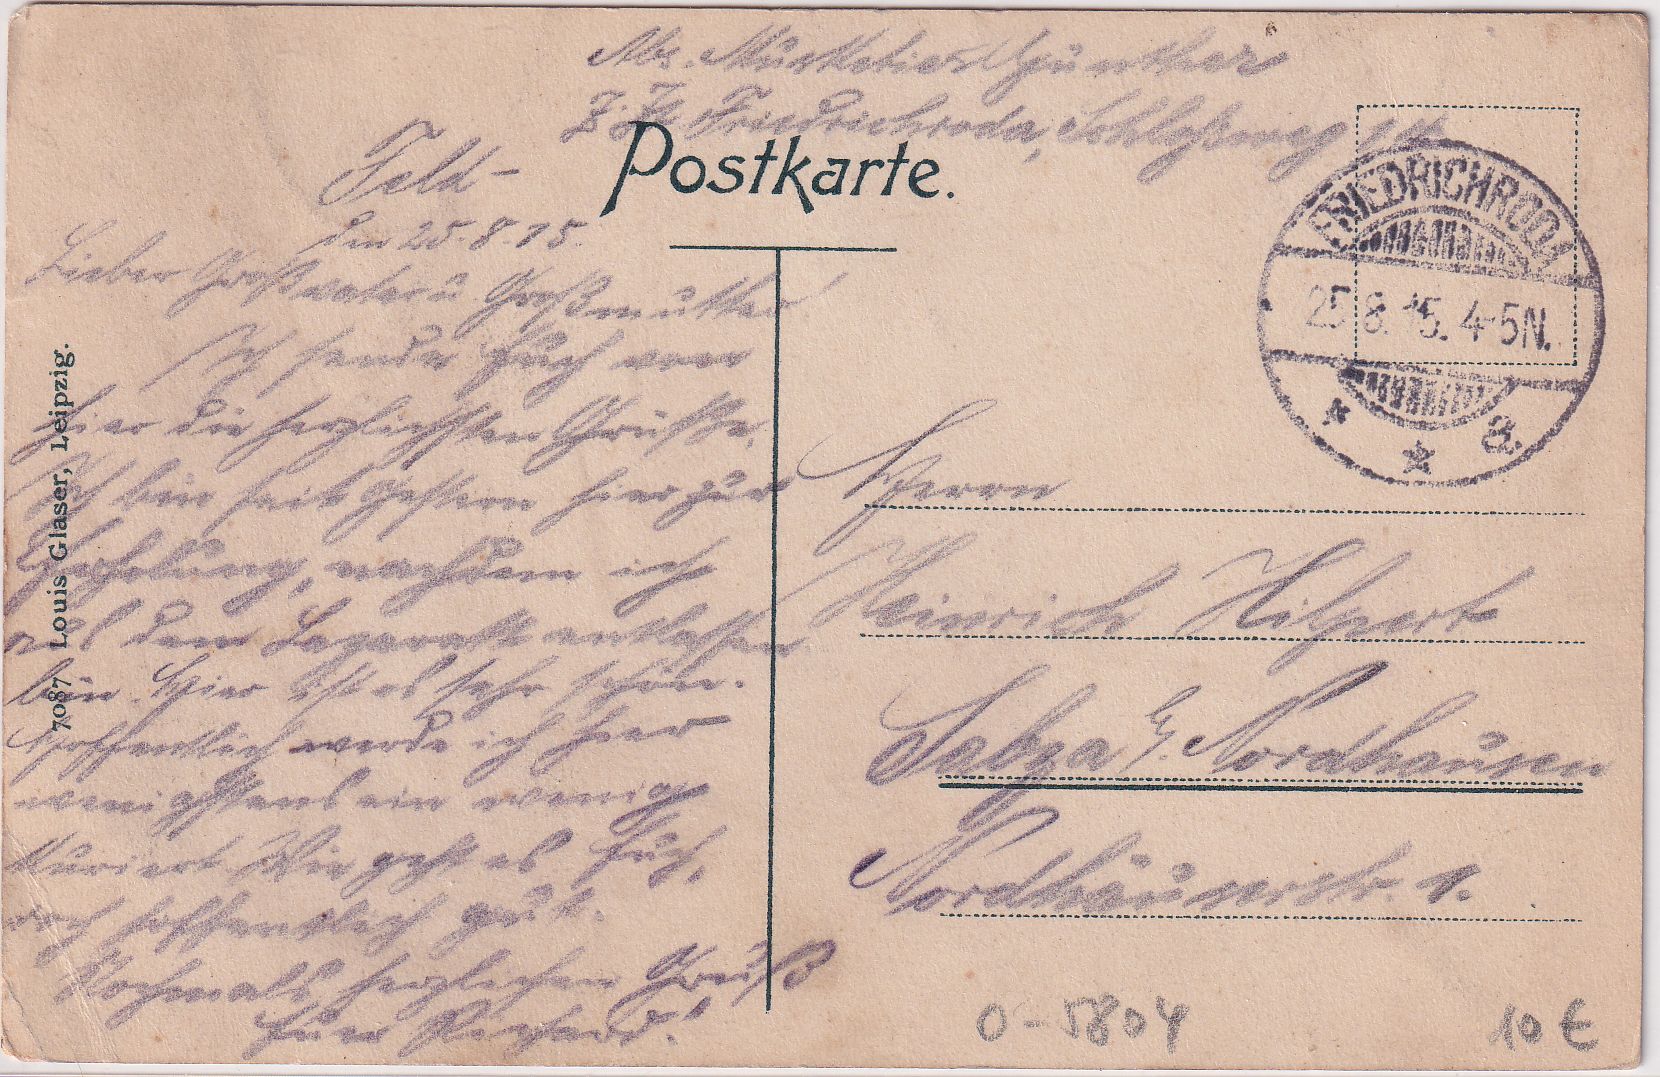 Abs. Musketier Günther
z. Zt. Friedrichroda, Schloßweg
Feld-
Postkarte.
den 25.8.15.
Lieber Großvater u. Großmutter!
Ich sende Euch von
hier die herzlichsten Grüße.
Ich bin seit gestern hier zur
Erholung, nachdem ich
aus dem Lazarett entlassen
bin. Hier ist es sehr schön.
Hoffentlich werde ich hier
wenigstens ein wenig
kuriert. Wie geht es Euch,
doch hoffentlich gut.
Nochmals herzlichen Gruß
Euer Richard!
7087 Louis Glaser, Leipzig.
FRIEDRICHRODA
25.8.15. 4-5N.
* * a.
Herrn
Heinrich Hilpert
Salza b/. Nordhausen
Nordhäuserstr. 1.
0-5804
10 €